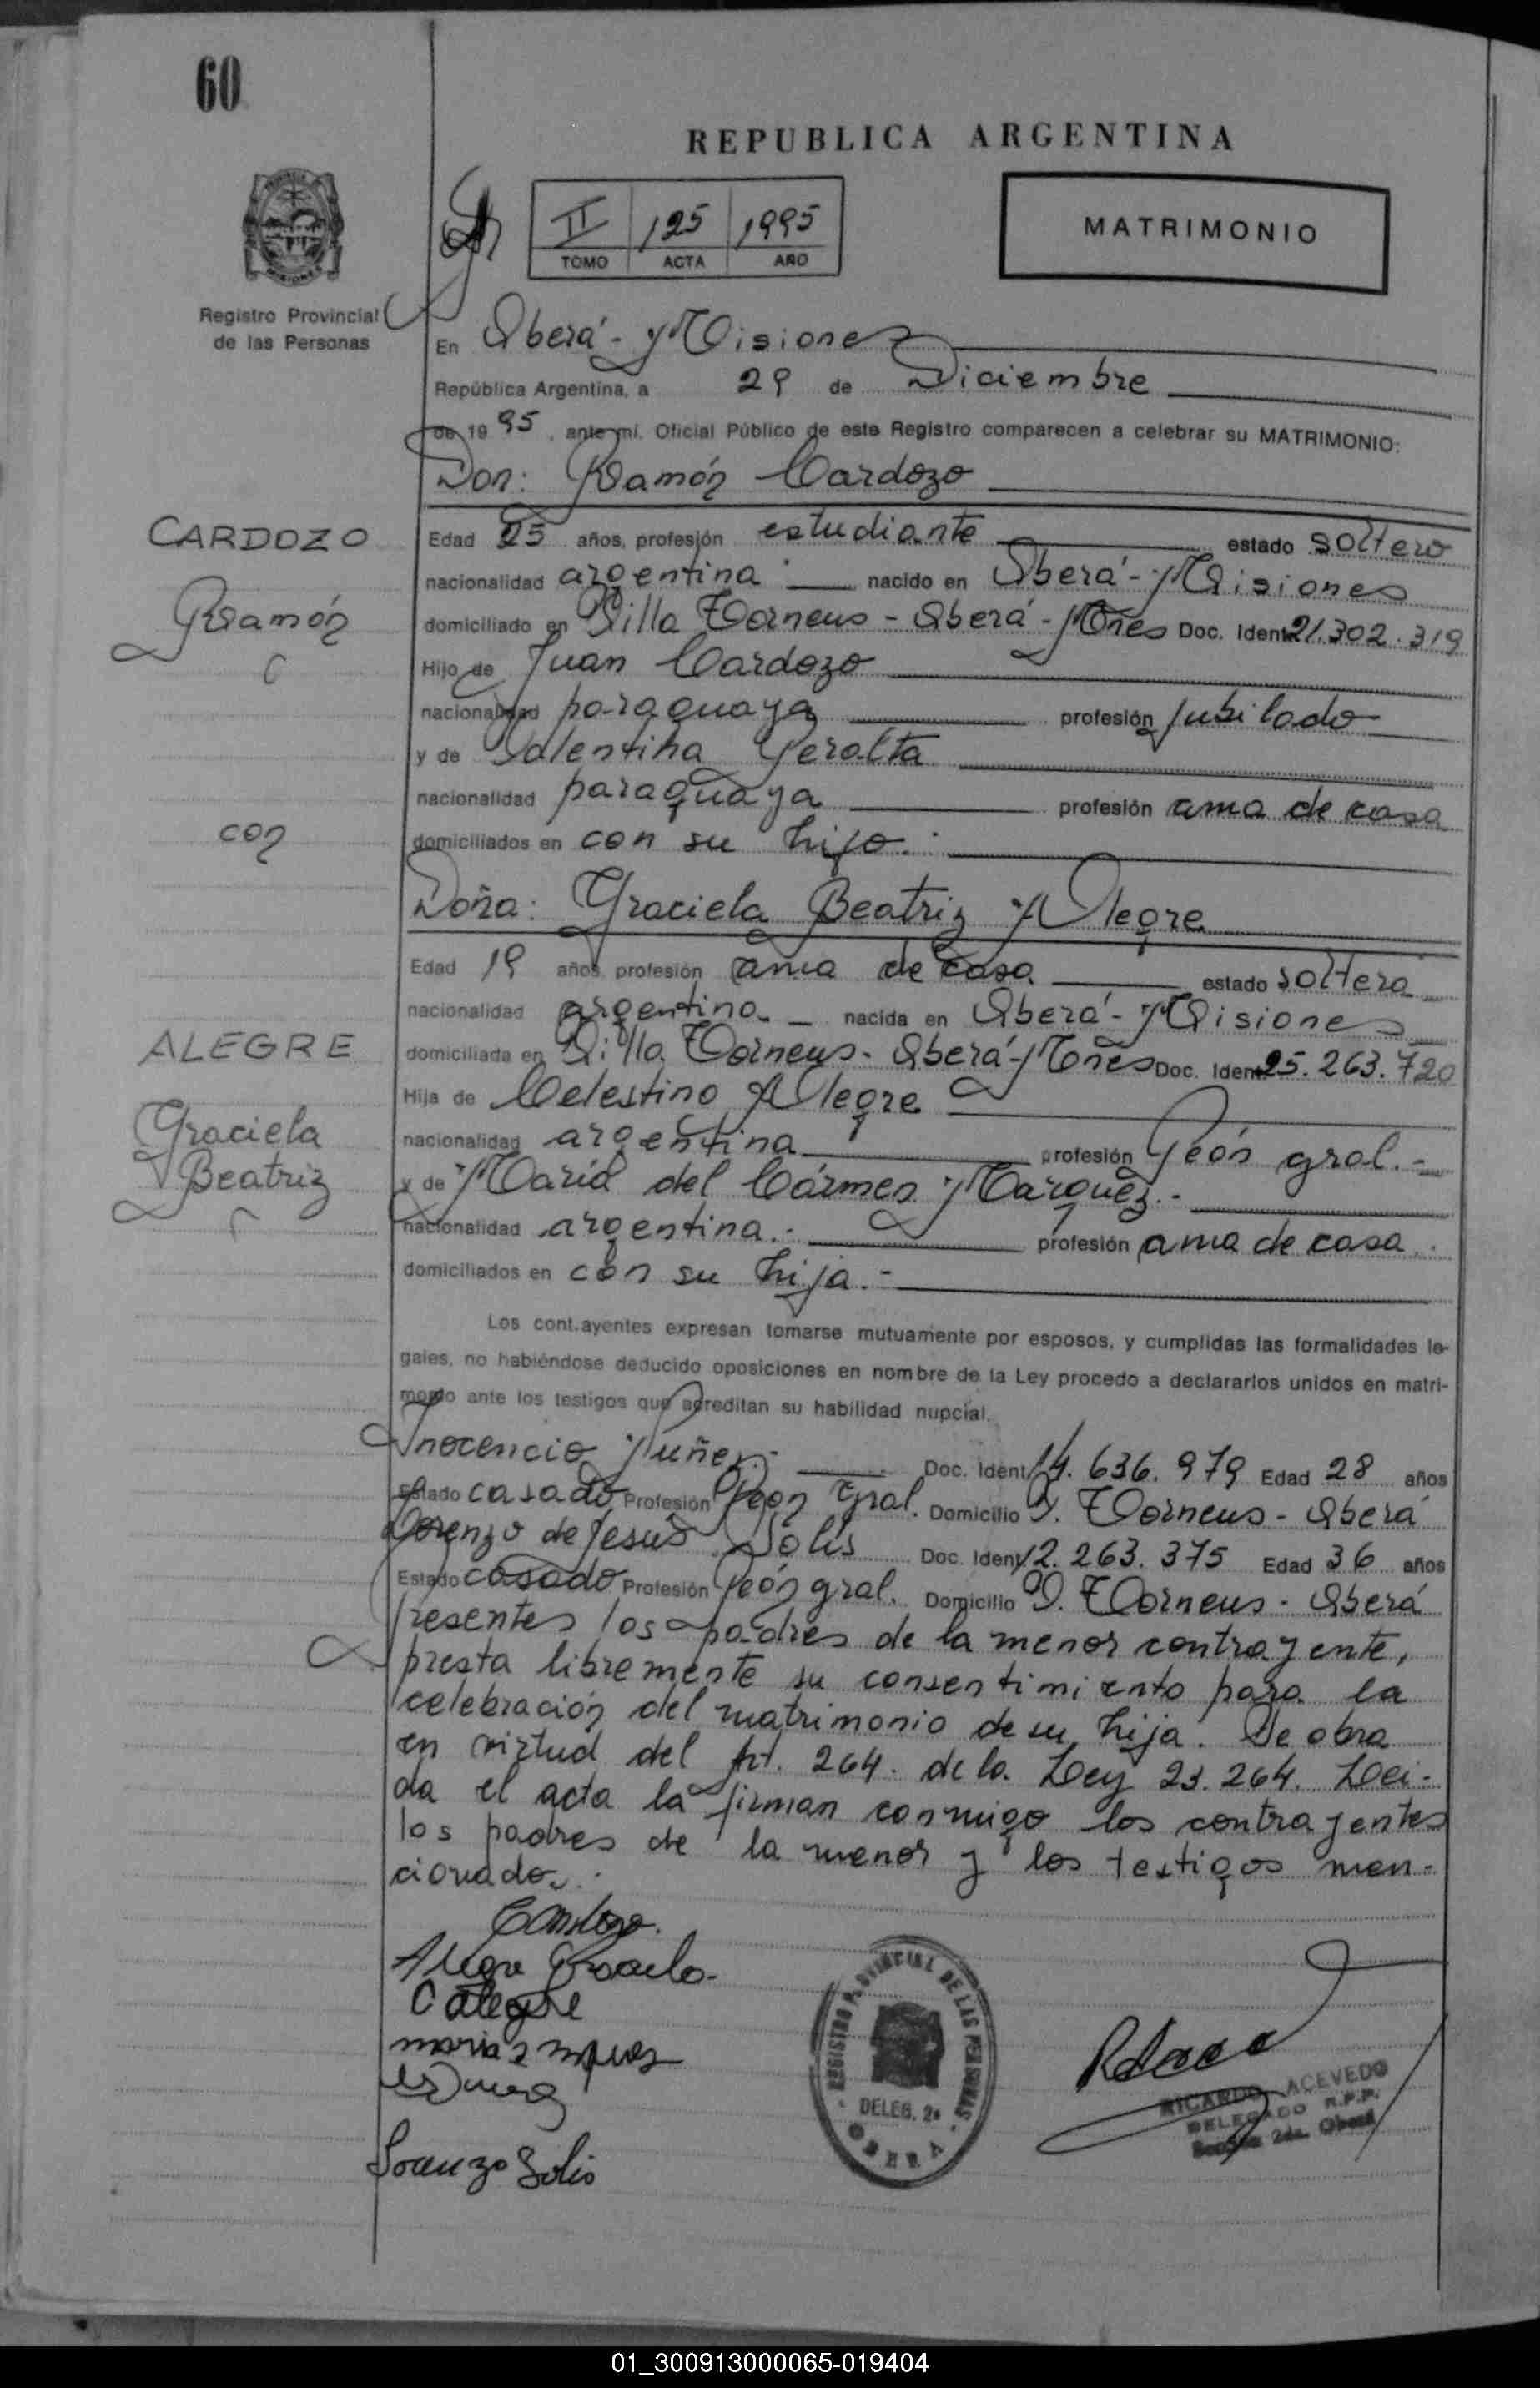 60
REPUBLICA ARGENTINA
II 125 1995
TOMO ACTA AÑO
MATRIMONIO
Registro Provincial
de las Personas
En Oberá - Misiones
República Argentina, a 29 de Diciembre
de 19 95, ante mí, Oficial Público de este Registro comparecen a celebrar su MATRIMONIO:
Don: Ramón Cardozo
CARDOZO
Ramón
Edad 25 años, profesión estudiante estado soltero
nacionalidad argentina nacido en Oberá - Misiones
domiciliado en Villa Torneus - Oberá - Mnes Doc. Ident 21.302.319
Hijo de Juan Cardozo
nacionalidad paraguaya profesión jubilado
y de Valentina Peralta
nacionalidad paraguaya profesión ama de casa
con
domiciliados en con su hijo.
Doña: Graciela Beatriz Alegre
Edad 19 años, profesión ama de casa estado soltera
nacionalidad argentina nacida en Oberá - Misiones
ALEGRE
Graciela
Beatriz
domiciliada en Villa Torneus - Oberá - Mnes Doc. Ident 25.263.720
Hija de Celestino Alegre
nacionalidad argentina profesión Peón gral.-
y de María del Cármen Marquez.-
nacionalidad argentina.- profesión ama de casa.
domiciliados en con su hija.-
Los cont.ayentes expresan tomarse mutuamente por esposos, y cumplidas las formalidades le-
gales, no habiéndose deducido oposiciones en nombre de la Ley procedo a declararlos unidos en matri-
monio ante los testigos que acreditan su habilidad nupcial.
Inocencio Nuñez.- Doc. Ident 14.636.979 Edad 28 años
Estado casado Profesión Peón Gral. Domicilio V. Torneus - Oberá
Lorenzo de Jesus Solis Doc. Ident 12.263.375 Edad 36 años
Estado casado Profesión Peón gral. Domicilio V. Torneus - Oberá
Presentes los padres de la menor contrayente,
presta libremente su consentimiento para la
celebración del matrimonio de su hija. Se obra
en virtud del Art. 264. de la Ley 23.264. Lei-
da el acta la firman conmigo los contrayentes
los padres de la menor y los testigos men-
cionados.-
Cardozo.
Alegre Graciela
C Alegre
Lorenzo Solis
REGISTRO PROVINCIAL DE LAS PERSONAS
DELEG. 2a
OBERA
RICARDO ACEVEDO
DELEGADO R.P.P.
Sección 2da. Oberá
01_300913000065-019404